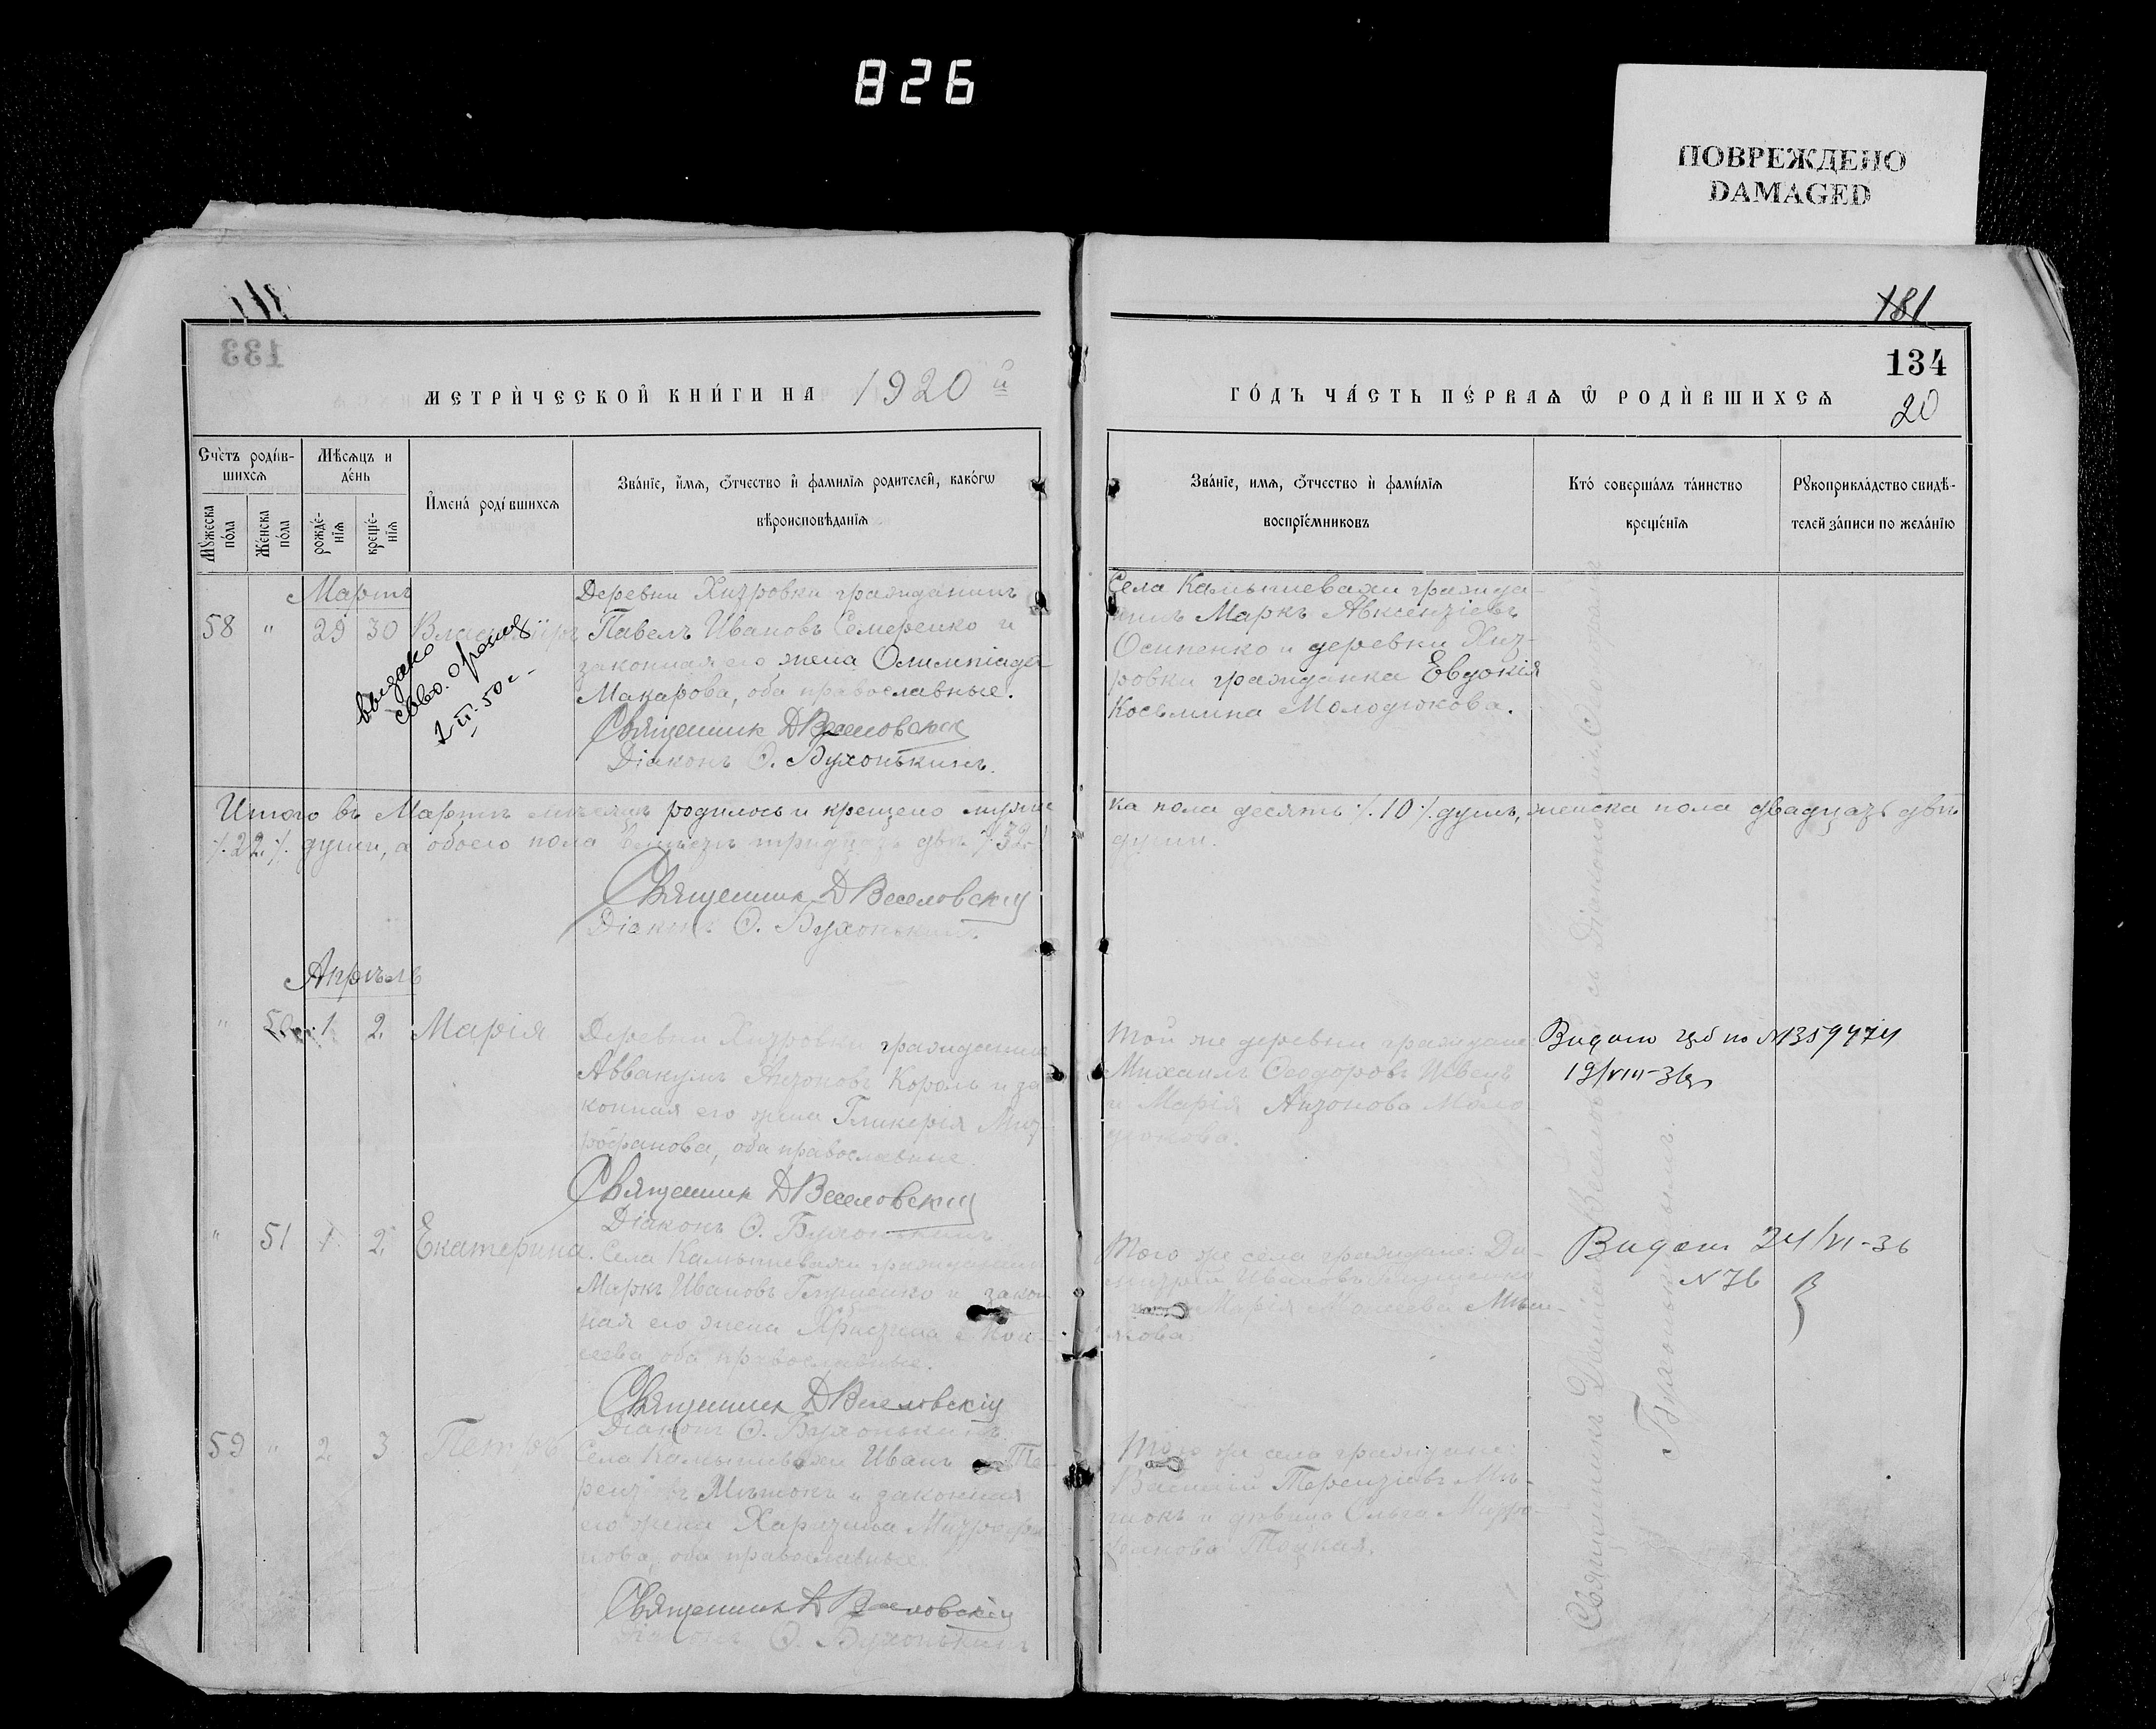 826
ПОВРЕЖДЕНО
DAMAGED
181
134
20
133
МЕТРИЧЕСКОЙ КНИГИ НА 1920 й
ГОДЪ ЧАСТЬ ПЕРВАѦ Ѡ РОДИВШИХСѦ
Счетъ родив-
шихсѧ
Мѣсѧцъ и
день
Мужеска
пола
Женска
пола
рожде-
нїѧ
креще-
нїѧ
Имена родившихсѧ
Званїе, имѧ, ѿчество и фамилїѧ родителей, какогѡ
вѣроисповѣданїѧ
Званїе, имѧ, ѿчество и фамилїѧ
воспрїемниковъ
Кто совершалъ таинство
крещенїѧ
Рꙋкоприкладство свидѣ-
телей записи по желанїю
Мартъ
58 " 29 30 Владиміръ
выдано
2-II-50 г-
Деревни Хитровки гражданинъ
Павелъ Ивановъ Семеренко и
законная его жена Олимпіада
Макарова, оба православные.
Священник Д Веселовск
Діаконъ Ѳ. Бухонькинъ.
Села Камышевахи гражда-
нинъ Маркъ Авксентіевъ
Осипенко и деревни Хит-
ровки гражданка Евдокія
Косьмина Молодюкова.
Итого въ Мартѣ мѣсяцѣ родилось и крещено мужес
ка пола десять ./. 10 ./. душъ, женска пола двадцать двѣ
./. 22 ./. души, а обоего пола тридцать двѣ ./. 32 ./.
души.
Священник Д Веселовскій
Діаконъ Ѳ. Бухонькинъ.
Апрѣль
" 50 1. 2. Марія
Деревни Хитровки гражданинъ
Аввакумъ Антоновъ Король и за
конная его жена Гликерія Мит-
рофанова, оба православные.
Священник Д Веселовскій
Діаконъ Ѳ. Бухонькинъ
Той же деревни граждане
Михаилъ Ѳеодоровъ Швецъ
и Марія Антонова Моло
дюкова.
Видано по N1359474
19/VIII-36
" 51 1. 2. Екатерина.
Села Камышевахи гражданинъ
Маркъ Ивановъ Глущенко и закон
ная его жена Христина
сеева, оба православные.
Священник Д Веселовскій
Діаконъ Ѳ. Бухонькинъ.
Того же села граждане: Ди-
митрій Ивановъ
Марія Моисеева
кова.
Видано 24/VI-36
N 76
59 " 2. 3 Петръ
Села Камышевахи Иванъ Те-
рентіевъ Мѣшокъ и законная
его жена Харитина Митрофа
нова, оба православные.
Священник Д Веселовскій
Діаконъ Ѳ. Бухонькинъ
Того же села граждане:
Василій Терентіевъ Мѣ-
шокъ и дѣвица Ольга Митро-
фанова
Священникъ Даміанъ Веселовскій съ Діакономъ Ѳеодоромъ
Бухонькинымъ.